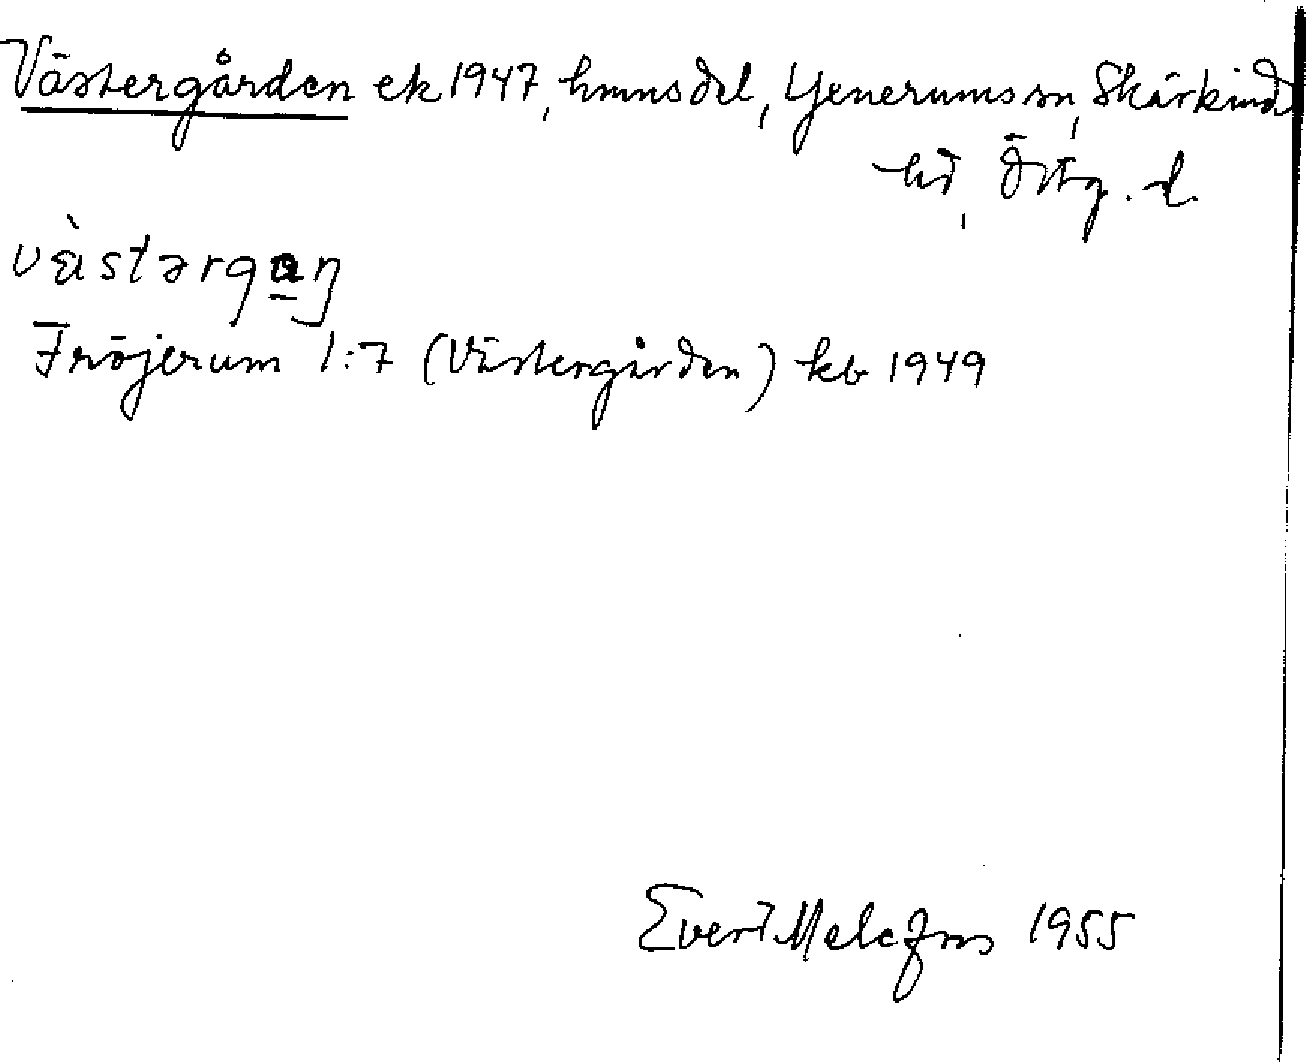 Västergården ek 1947, hmnsdel, Yxnerums sn, Skärkind
hd, Östg. l.
västərgaŋ
Fröjerum 1:7 (Västergården) kb 1949
Evert Melefors 1955